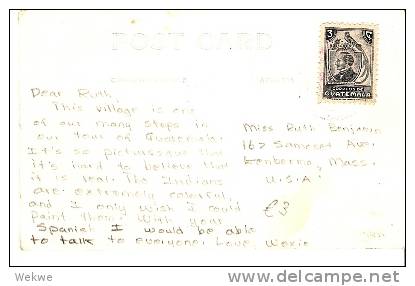 POST CARD
Dear Ruth,
This village is one
of our many stops in
our tour of Guatemala.
It's so picturesque that
it's hard to believe that
it is real. The Indians
are extremely colorful,
and I only wish I could
paint them. With your
Spanish I would be able
to talk to everyone. Love, Wexie
3
CORREOS DE
GUATEMALA
Miss Ruth Benjamin
162 Samoset Ave.
Kenberma, Mass.
U.S.A.
€3
Wekwe
delcampe.net